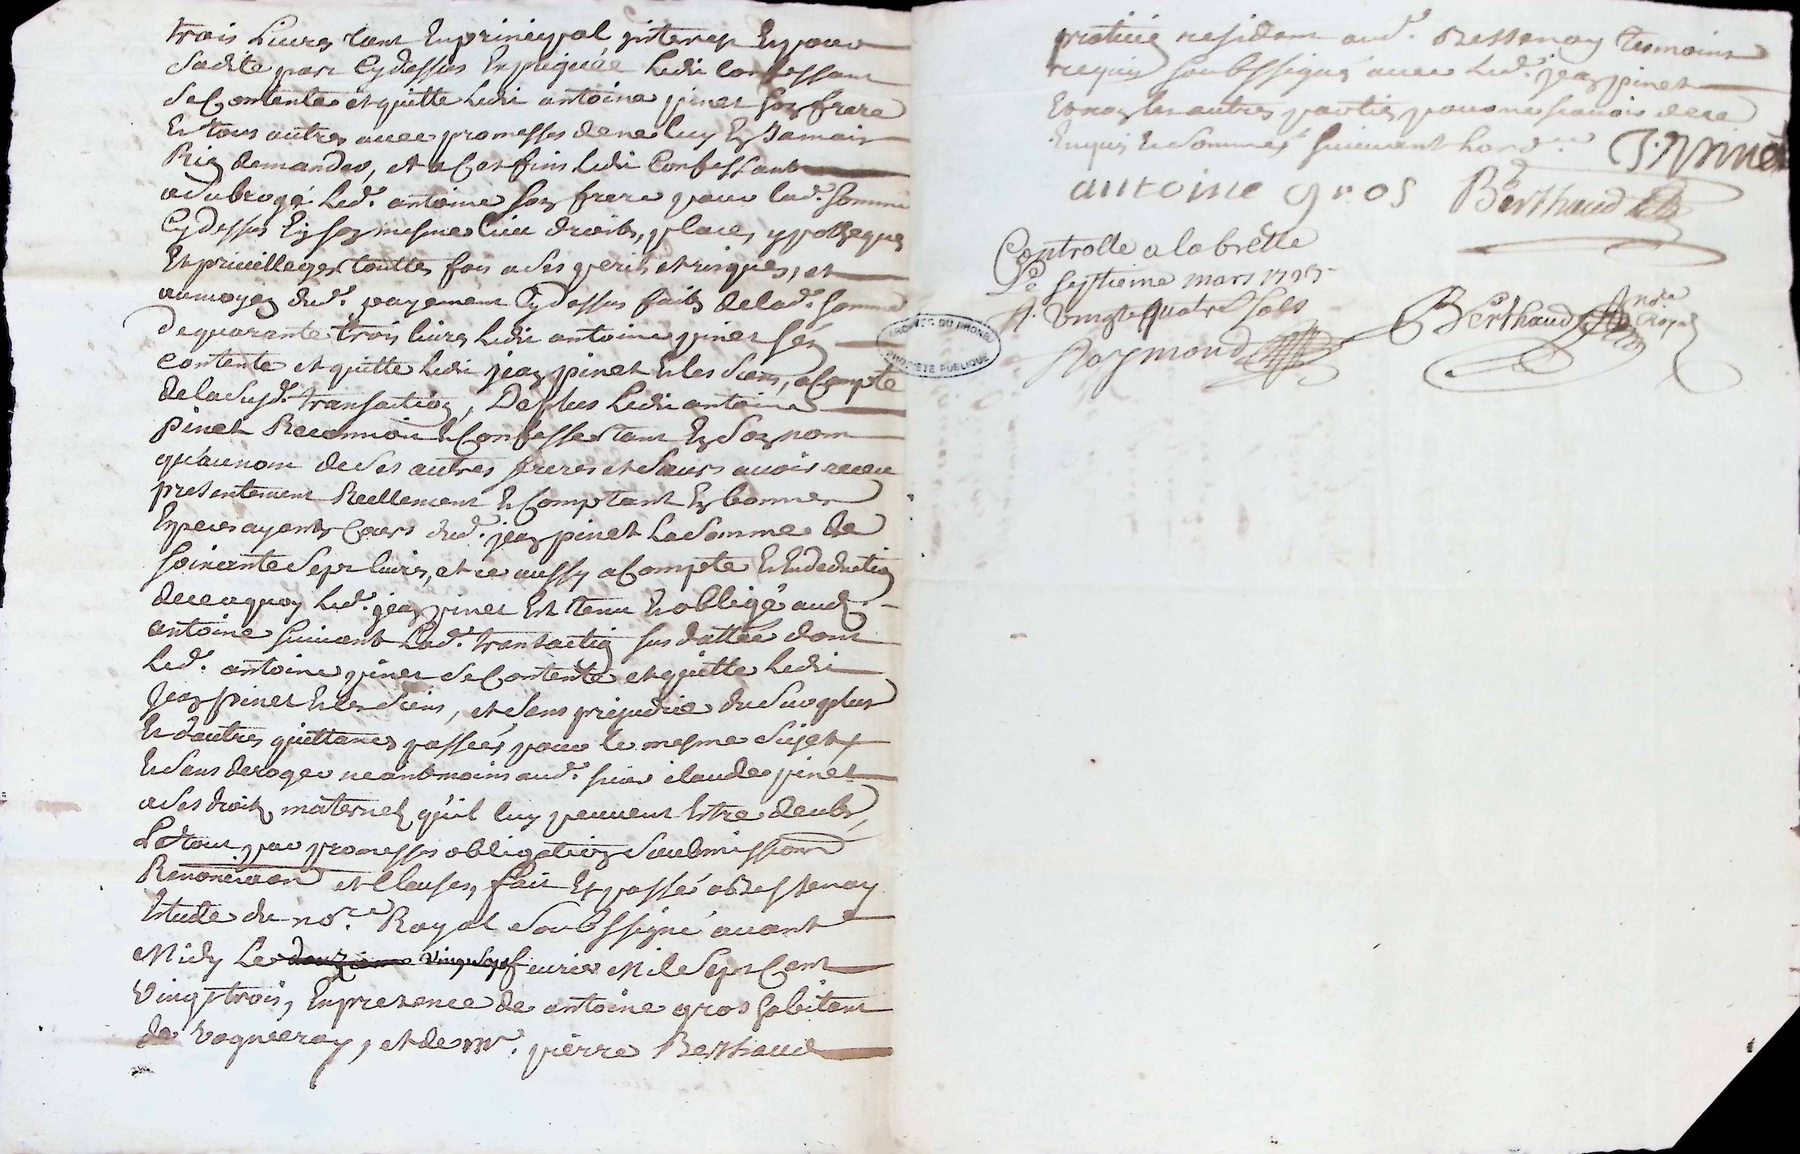 trois Livres tant En principal jnterest Et pour
Sadite part Cydessus Expliquée Ledit Confessant
Se Contente et quitte Ledit antoine pinet son frere
Et tous autres avec promesses de ne luy En Jamais
Rien demander, et a Cet fins ledit Confessant
a Subrogé Led.t antoine son frere pour lad.e somme
Cydessus En son mesme lieu droits, place, ypotheques
Et privilleges touttes fois a ses perils et risques, et
au moyen dud.t payement Cydessus faits de lad.e somme
de quarante trois livres Ledit antoine pinet s'en
Contente et quitte Ledit jean pinet Et les Siens, a Compte
de la Susd.e transaction, De plus Ledit antoine
pinet Reconnoit Et Confesse tant En Son nom
qu'au nom de Ses autres freres et Sœurs avoir receu
presentement Reellement Et Comptant En bonnes
Especes ayants Cours dud.t jean pinet La Somme de
Soixante Sept livres, et ce aussy a Compte Et En deduction
de ce a quoy Led.t jean pinet Est tenu Et obligé aud.t
antoine suivant Lad.e transaction sus dattée dont
Led.t antoine pinet Se Contente et quitte Ledit
Jean pinet Et les Siens, et Sans prejudice du Surplus
Et d'autres quittances passées pour le mesme Sujet
Et Sans deroger neantmoins aud.t sieur claude pinet
a Ses droits maternels qu'il luy peuvent Estre deubs,
Le tout par promesses obligation Soubmissions
Renonciaon et Clauses, fait Et passé a Bessenay
Etude du no.re Royal Soubssigné avant
Midy Le douzieme vingt Sept fevrier Mil Sept Cent
Vingt trois, En presence de antoine gros habitant
de vaugneray, et de m.r pierre Berthaud
praticien resident aud.t Bessenay temoins
requis soubssignés avec Led.t jean pinet
Et non les autres parties pour ne sçavoir de ce
Enquis Et Sommés suivant l'ord.ce J. pinnet
antoine gros Berthaud
Controllé a la brelle
Le septieme mars 1723
R. vingt quatre Sols
Raymond
Berthaud no.re Royal
ARCHIVES DU RHONE
PROPRIETE PUBLIQUE